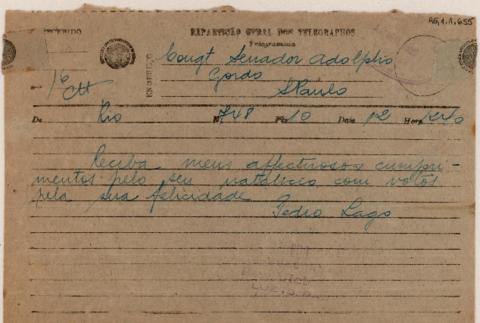 AG.1.1.655
REPARTIÇÃO GERAL DOS TELEGRAPHOS
Telegramma
EM SERVIÇO
Senador Adolpho
Gordo
S Paulo
De Rio N. 748 Pls 10 Data 12 Hora
Receba meus affectuosos cumpri-
mentos pelo seu natalicio com votos
pela sua felicidade
Pedro Lago